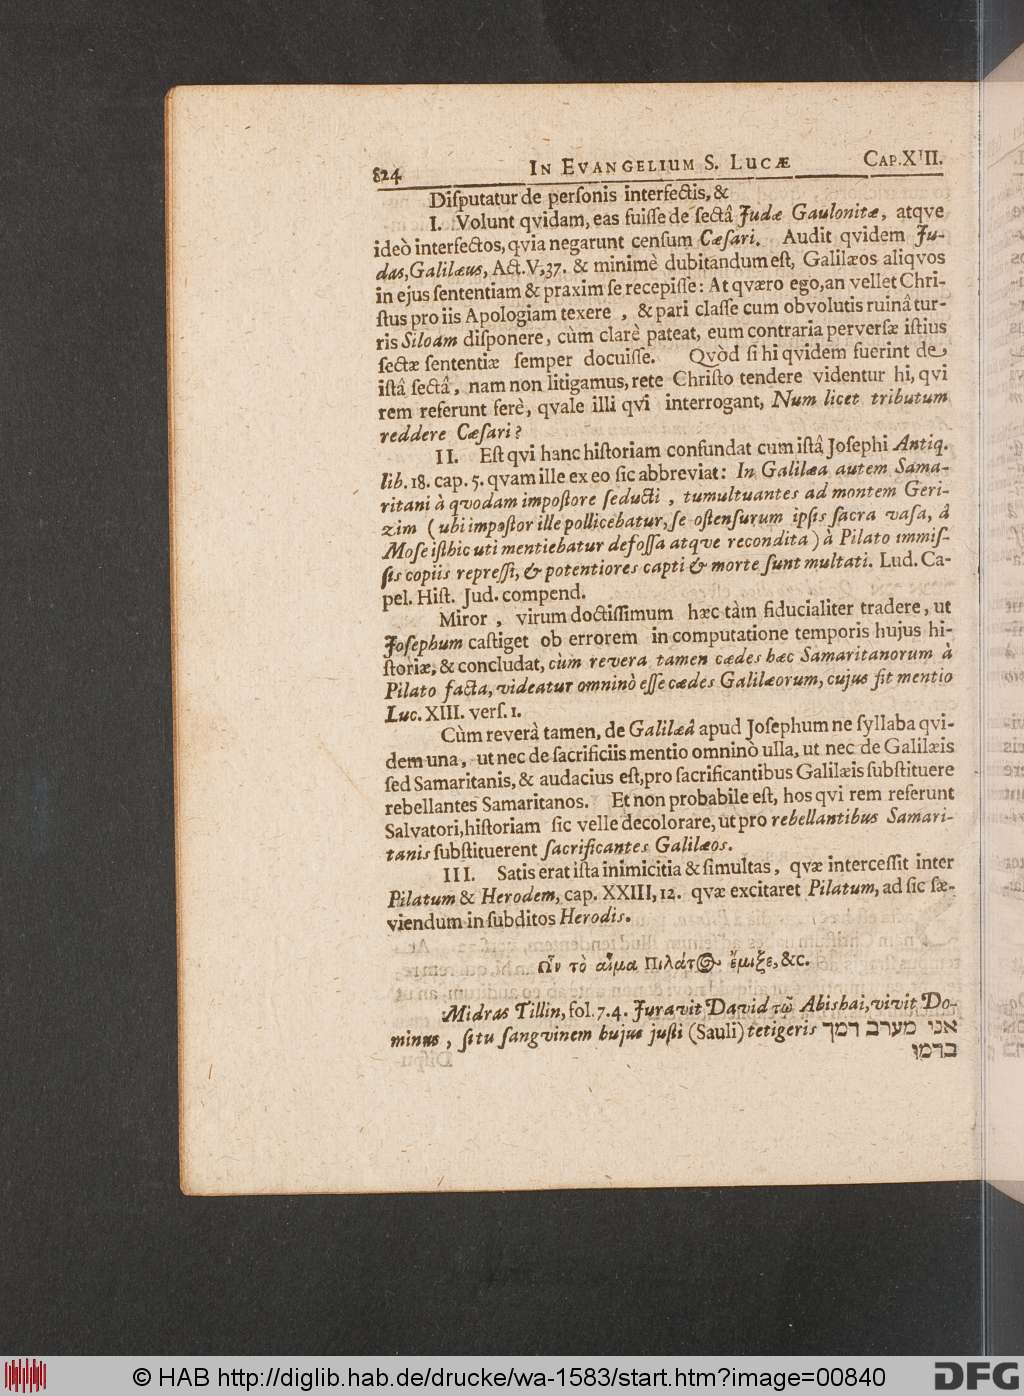 824 In Evangelium S. Lucæ Cap. XIII.
Diſputatur de perſonis interfectis, &
I. Volunt qvidam, eas fuiſſe de ſectâ Judæ Gaulonitæ, atqve
ideò interfectos, qvia negarunt cenſum Cæſari. Audit qvidem Ju-
das, Galilæus, Act. V, 37. & minimè dubitandum eſt, Galilæos aliqvos
in ejus ſententiam & praxim ſe recepiſſe: At qværo ego, an vellet Chri-
ſtus pro iis Apologiam texere, & pari claſſe cum obvolutis ruinâ tur-
ris Siloam diſponere, cùm clarè pateat, eum contraria perverſæ iſtius
ſectæ ſententiæ ſemper docuiſſe. Qvòd ſi hi qvidem fuerint de
iſtâ ſectâ, nam non litigamus, rete Chriſto tendere videntur hi, qvi
rem referunt ferè, qvale illi qvi interrogant, Num licet tributum
reddere Cæſari?
II. Eſt qvi hanc hiſtoriam confundat cum iſtâ Joſephi Antiq.
lib. 18. cap. 5. qvam ille ex eo ſic abbreviat: In Galilæa autem Sama-
ritani à qvodam impoſtore ſeducti, tumultuantes ad montem Geri-
zim (ubi impoſtor ille pollicebatur, ſe oſtenſurum ipſis ſacra vaſa, â
Moſe iſthic uti mentiebatur defoſſa atqve recondita) à Pilato immiſ-
ſis copiis repreſſi, & potentiores capti & morte ſunt multati. Lud. Ca-
pel. Hiſt. Jud. compend.
Miror, virum doctiſſimum hæc tàm fiducialiter tradere, ut
Joſephum caſtiget ob errorem in computatione temporis hujus hi-
ſtoriæ, & concludat, cùm revera tamen cædes hæc Samaritanorum à
Pilato facta, videatur omninò eſſe cædes Galilæorum, cujus fit mentio
Luc. XIII. verſ. 1.
Cùm reverà tamen, de Galilæâ apud Joſephum ne ſyllaba qvi-
dem una, ut nec de ſacrificiis mentio omninò ulla, ut nec de Galilæis
ſed Samaritanis, & audacius eſt, pro ſacrificantibus Galilæis ſubſtituere
rebellantes Samaritanos. Et non probabile eſt, hos qvi rem referunt
Salvatori, hiſtoriam ſic velle decolorare, ut pro rebellantibus Samari-
tanis ſubſtituerent ſacrificantes Galilæos.
III. Satis erat iſta inimicitia & ſimultas, qvæ interceſſit inter
Pilatum & Herodem, cap. XXIII, 12. qvæ excitaret Pilatum, ad ſic ſæ-
viendum in ſubditos Herodis.
Ὧν τὸ αἷμα Πιλάτος ἔμιξε, &c.
Midras Tillin, fol. 7. 4. Juravit David τῶ Abishai, vivit Do-
minus, ſi tu ſangvinem hujus juſti (Sauli) tetigeris אנו מערב דמך
בדמו
© HAB http://diglib.hab.de/drucke/wa-1583/start.htm?image=00840
DFG